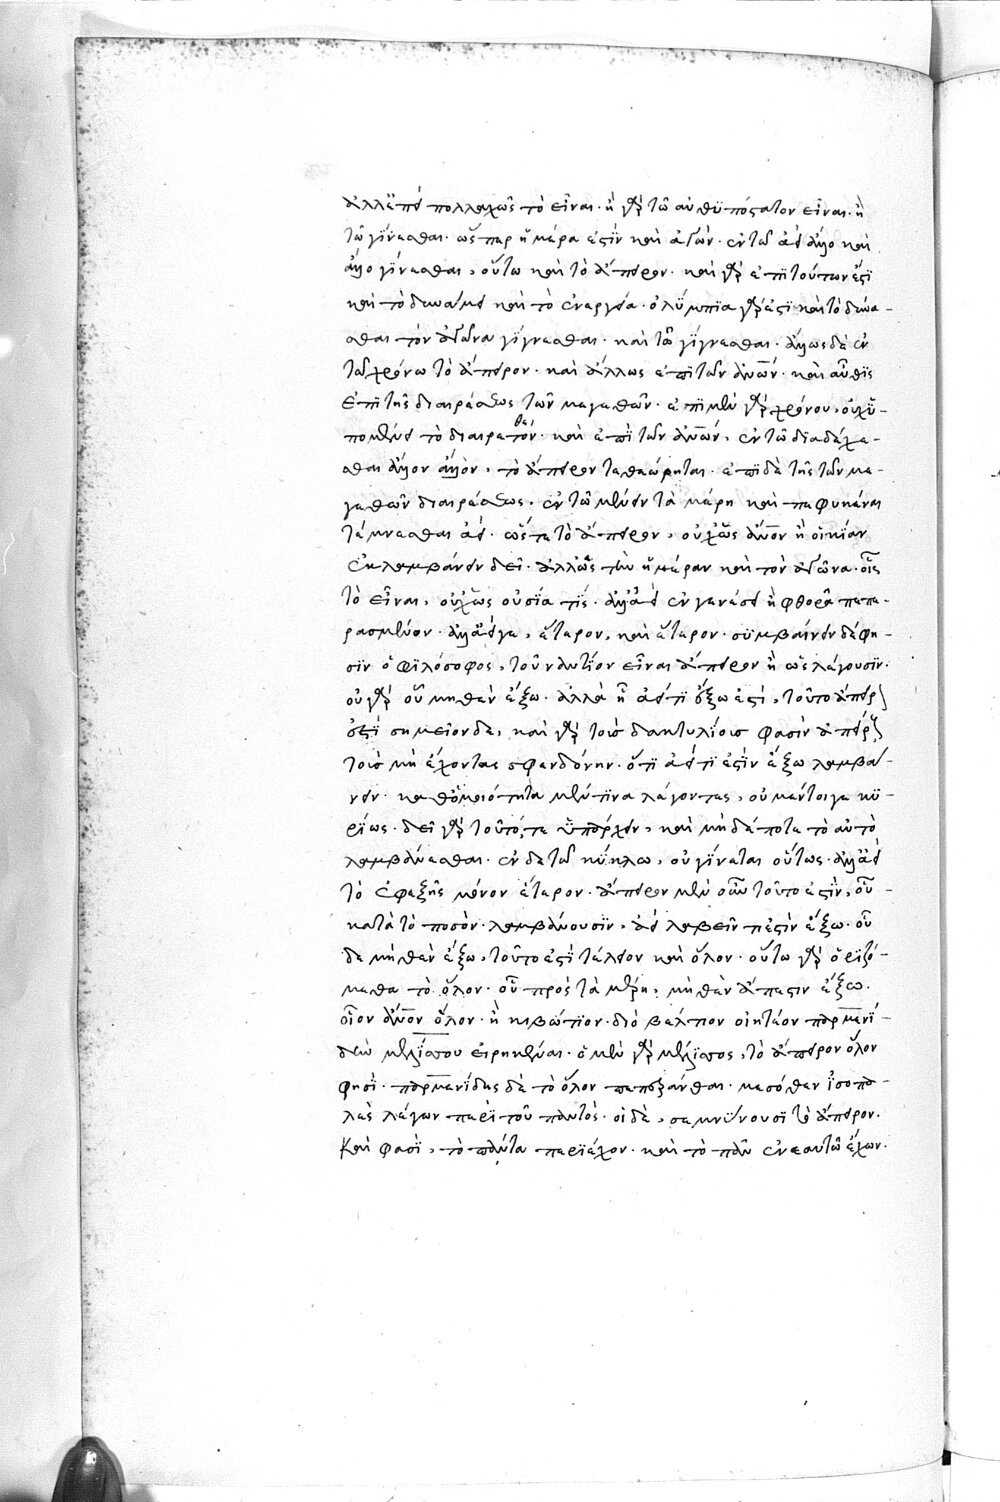 ἀλλ' ἐπεὶ πολλαχῶς τὸ εἶναι· ἢ γὰρ τῶ αὐθϋπόστατον εἶναι· ἢ
τῶ γίνεσθαι· ὥσπερ ἡμέρα ἐστὶν καὶ ἀγών· ἐν τῶ ἀεὶ ἄλλο καὶ
ἄλλο γίνεσθαι, οὕτω καὶ τὸ ἄπειρον· καὶ γὰρ ἐπὶ τούτων ἐστὶ
καὶ τὸ δυνάμει καὶ τὸ ἐνεργεία· ὀλύμπια γὰρ ἐστὶ καὶ τὸ δύνα-
σθαι τὸν ἀγῶνα γίγνεσθαι· καὶ τῶ γίγνεσθαι· ἄλλως δὲ ἐν
τῶ χρόνω τὸ ἄπειρον· καὶ ἄλλως ἐπὶ τῶν ἀνων· καὶ αὖθις
ἐπὶ τῆς διαιρέσεως τῶν μεγεθῶν· ἐπὶ μὲν γὰρ χρόνου, οὐχ ὑ-
πομένει τὸ διαιρεθέν· καὶ ἐπὶ τῶν ἀνων, ἐν τῶ διαδέχε-
σθαι ἄλλον ἄλλον, τὸ ἄπειρον τεθεώρηται· ἐπὶ δὲ τῆς τῶν με-
γεθῶν διαιρέσεως, ἐν τῶ μένειν τὰ μέρη καὶ πεφυκέναι
τέμνεσθαι ἀεί· ὥστε τὸ ἄπειρον, οὐχ ὡς ἀνον ἢ οἰκίαν
ἐκλαμβάνειν δεῖ· ἀλλ' ὡς τὴν ἡμέραν καὶ τὸν ἀγῶνα· οἷς
τὸ εἶναι, οὐχ ὡς οὐσία τίς· ἀλλ' ἀεὶ ἐν γενέσει ἢ φθορᾶ πεπε-
ρασμένον· ἀλλ' ἀεί γε, ἕτερον, καὶ ἕτερον· συμβαίνειν δέ φη-
σιν ὁ φιλόσοφος, τοὐναντίον εἶναι ἄπειρον ἢ ὡς λέγουσιν·
οὐ γὰρ οὗ μηθὲν ἔξω· ἀλλὰ ἢ ἀεί τι ἔξω ἐστὶ, τοῦτο ἄπειρον
ἐστὶ σημεῖον δέ, καὶ γὰρ τοὺς δακτυλίους φασὶν ἀπείρους
τοὺς μὴ ἔχοντας σφενδόνην· ὅτι ἀεί τι ἐστὶν ἔξω λαμβά-
νειν· καθ' ὁμοιότητα μέν τινα λέγοντες, οὐ μέντοι γε κυ-
ρίως· δεῖ γὰρ τοῦτό τε ὑπάρχειν, καὶ μηδέποτε τὸ αὐτὸ
λαμβάνεσθαι· ἐν δὲ τῶ κύκλω, οὐ γίνεται οὕτως· ἀλλ' ἀεὶ
τὸ ἐφεξῆς μόνον ἕτερον· ἄπειρον μὲν οὖν τοῦτο ἐστὶν, οὗ
κατὰ τὸ ποσὸν λαμβάνουσιν, ἀεὶ λαβεῖν τι ἐστὶν ἔξω· οὗ
δὲ μηθὲν ἔξω, τοῦτο ἐστὶ τέλειον καὶ ὅλον· οὕτω γὰρ ὁριζό-
μεθα τὸ ὅλον· οὗ πρὸς τὰ μέρη, μηθὲν ἄπεστιν ἔξω·
οἷον ἀνον ὅλον· ἢ κιβώτιον· διὸ βέλτιον οἰητέον παρμενί-
δην μελίσσου εἰρηκέναι· ὁ μὲν γὰρ μέλισσος, τὸ ἄπειρον ὅλον
φησί· παρμενίδης δὲ τὸ ὅλον πεπεράνθαι· μεσόθεν ἰσοπα-
λὲς λέγων περὶ τοῦ παντός· οἱ δὲ, σεμνύνουσι τὸ ἄπειρον·
καὶ φασὶ, τὸ πάντα περιέχον· καὶ τὸ πᾶν ἐν ἑαυτῶ ἔχων·